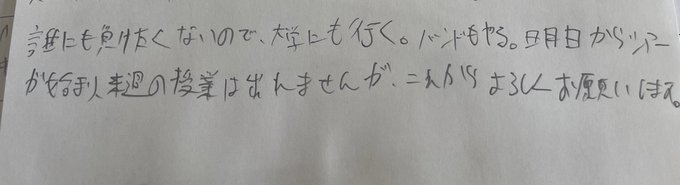 誰にも負けたくないので、大学にも行く。バンドもやる。明日からツアー
が始まり来週の授業は出れませんが、これからよろしくお願いします。